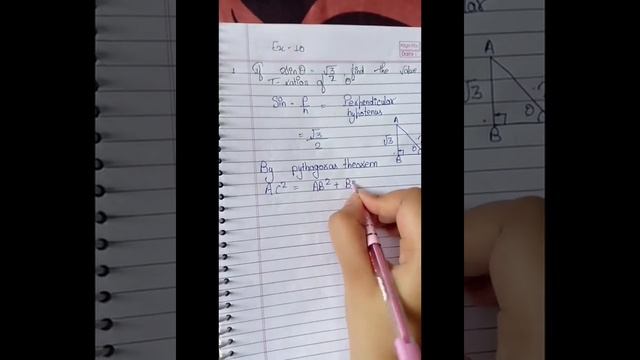 Ex - 10
1. If sinθ = √3/2 find the value
T-ratios of θ
Sin = P/h = Perpendicular/hypotenus
= √3/2
A
√3
B
θ
By Pythogoras theorem
AC² = AB² + B
A
√3
B
θ